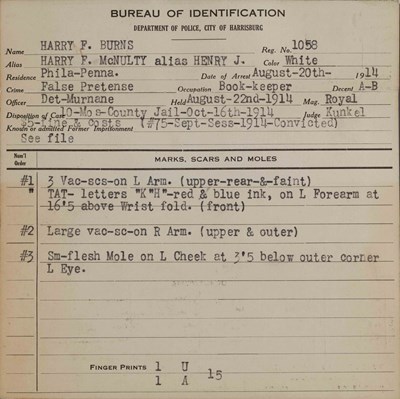 BUREAU OF IDENTIFICATION
DEPARTMENT OF POLICE, CITY OF HARRISBURG
Name HARRY F. BURNS Reg. No. 1058
Alias HARRY F. McNULTY alias HENRY J. Color White
Residence Phila-Penna. Date of Arrest August-20th- 1914
Crime False Pretense Occupation Book-keeper Decent A-B
Officer Det-Murnane Held August-22nd-1914 Mag. Royal
Disposition of Case 10-Mos-County Jail-Oct-16th-1914 Judge Kunkel
$5-Fine & costs (#75-Sept-Sess-1914-Convicted)
Known or admitted Former Imprisonment
See file
Num'l Order MARKS, SCARS AND MOLES
#1 3 Vac-scs-on L Arm. (upper-rear-&-faint)
" TAT- letters "K"H"-red & blue ink, on L Forearm at
16'5 above Wrist fold. (front)
#2 Large vac-sc-on R Arm. (upper & outer)
#3 Sm-flesh Mole on L Cheek at 3'5 below outer corner
L Eye.
FINGER PRINTS 1 U
1 A 15